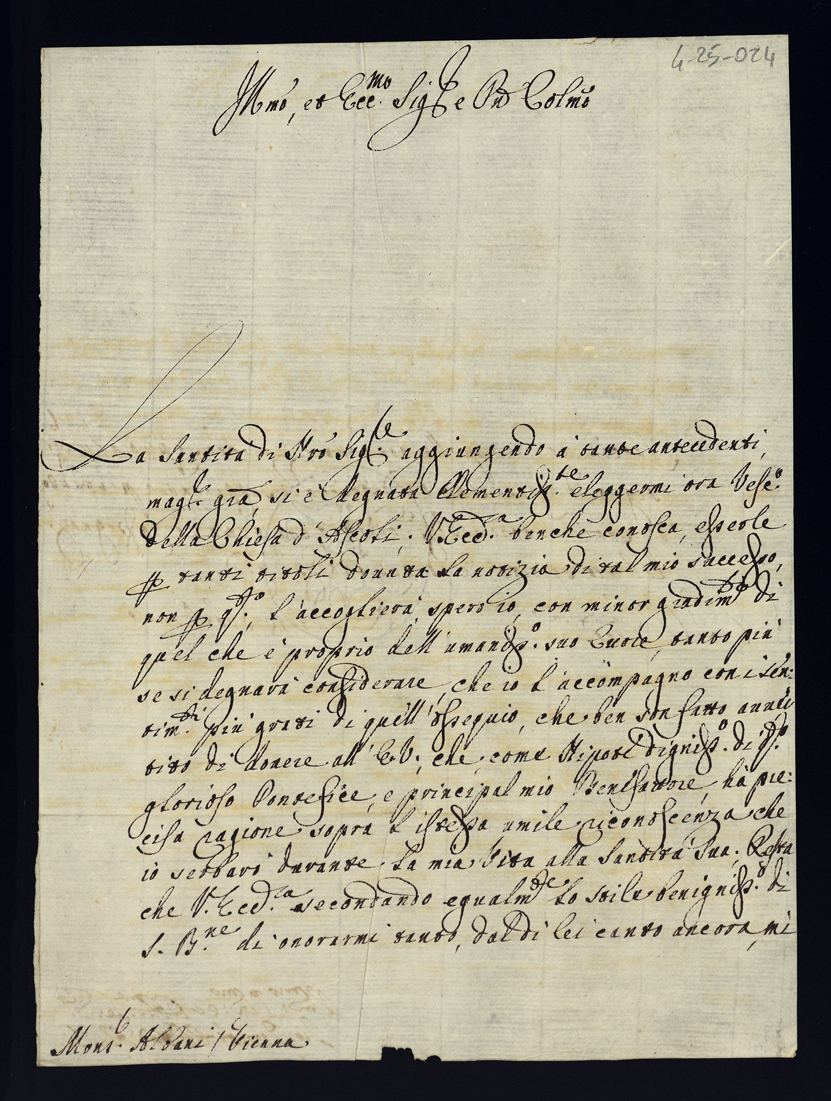 4-25-024
Illmo, et Ecc.mo Sig.r e Prõ Colmo
La Santità di Nrõ Sig.re aggiungendo à tante antecedenti,
già, si è degnata Clementiss.te eleggermi ora Vesc.o
della Chiesa d'Ascoli. V. Ecc.a benche conosca, esserle
p tanti titoli dovuta la notizia di tal mio successo,
non p q.sto l'accoglierà, spero io, con minor gradim.to di
quel che è proprio dell'umaniss.o suo Cuore, tanto più
se si degnarà considerare, che io l'accompagno con i sen:
tim.ti più grati di quell'ossequio, che ben son fatto
di dovere all'E.V., che, come Nipote digniss.o di q.sto
glorioso Pontefice, e principal mio Benefattore, hà pre:
cisa ragione sopra l'istessa umile riconoscenza che
io serbarò durante la mia Vita alla Santità Sua. Resta
che V. Ecc.za secondando egualm.te lo stile benigniss.o di
S. B.ne di onorarmi tanto, dal di lei canto ancora, mi
Mons.r Albani / Vienna